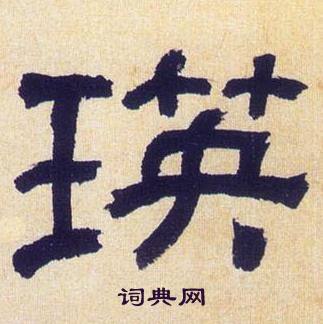 瑛
词典网